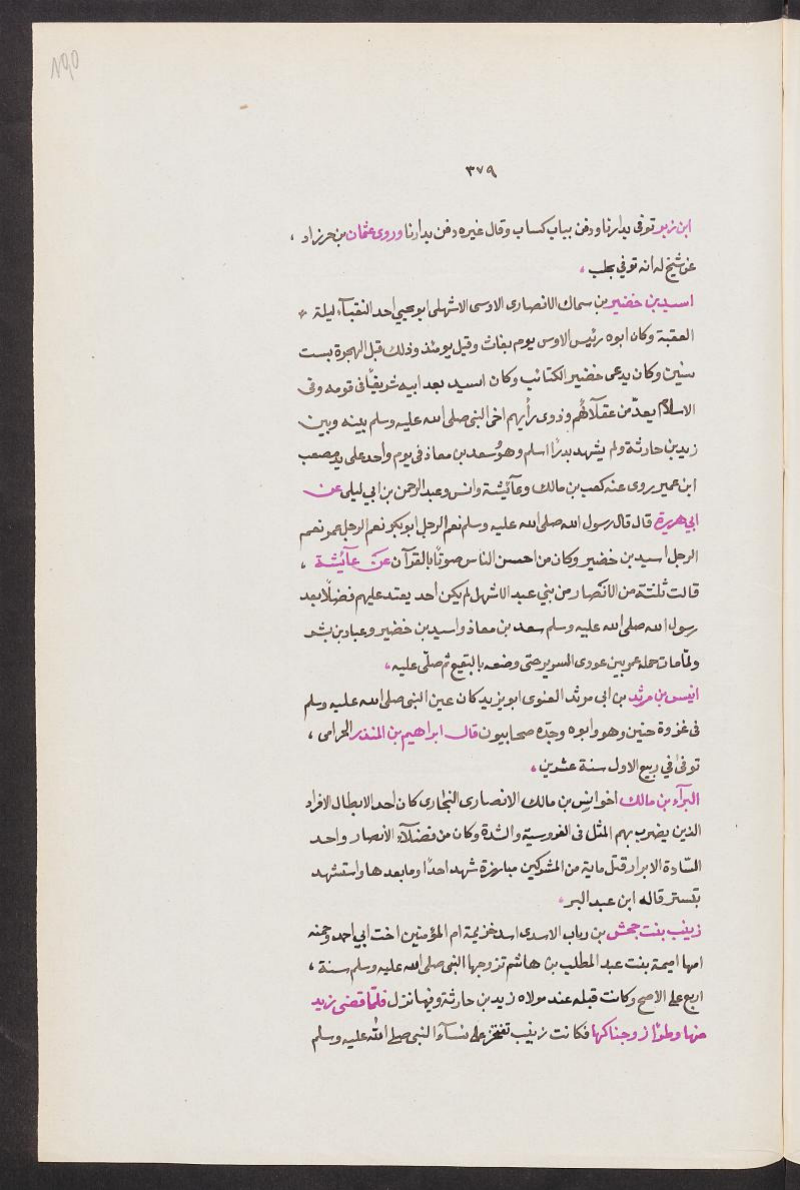 190
٣٧٩
ابن زبر توفى بدارنا ودفن بباب كساب وقال غيره دفن بدارنا وروى عثمان بن حرزاد ،
عن شيخ له انه توفي بحلب ،
اسيد بن خضير بن سماك الانصارى الاوسى الاشهلى ابو يحيى احد النقبآء ليلة *
العقبة وكان ابوه رئيس الاوس يوم بغاث وقيل يومئذ وذلك قبل الهجرة بست
سنين وكان يدعى خضير الكتائب وكان اسيد بعد ابيه شريفًا فى قومه وفى
الاسلام يعدّ من عقلآئهم وذوى رأيهم اخى النبى صلى الله عليه وسلم بينه وبين
زيد بن حارثة ولم يشهد بدرًا اسلم وهو وسعد بن معاذ فى يوم واحد على يد مصعب
ابن عمير روى عنه كعب بن مالك وعآئيشة وانس وعبد الرحمن بن ابي ليلى عن
ابي هريرة قال قال رسول الله صلى الله عليه وسلم نعم الرجل ابو بكر نعم الرجل عمر نعم
الرجل اسيد بن خضير وكان من احسن الناس صوتًا بالقرآن عن عآئيشة ،
قالت ثلثة من الانصار من بني عبد الاشهل لم يكن احد يعتد عليهم فضلًا بعد
رسول الله صلى الله عليه وسلم سعد بن معاذ واسيد بن خضير وعباد بن بشر
ولمّا مات حمله عمر بين عمودى السرير حتى وضعه بالبقيع ثم صلّى عليه ،
انيس بن مرثد بن ابى مرثد الغنوى ابو يزيد كان عين النبى صلى الله عليه وسلم
فى غزوة حنين وهو وابوه وجدّه صحابيون قال ابراهيم بن المنذر الحرامى ،
توفى في ربيع الاول سنة عشرين ،
البرآء بن مالك أخو انس بن مالك الانصارى النجارى كان احد الابطال الافراد
الذين يضرب بهم المثل فى الفروسيّة والشدة وكان من فضلآء الأنصار واحد
السّادة الابرار قتل ماية من المشركين مبارزة شهد احدًا وما بعدها واستشهد
بتستر قاله ابن عبد البر ،
زينب بنت جحش بن رباب الاسدى اسد خزيمة ام المؤمنين اخت ابي احمد وحمنه
امها اميمة بنت عبد المطلب بن هاشم تزوجها النبى صلى الله عليه وسلم سنة ،
اربع على الاصح وكانت قبله عند مولاه زيد بن حارثة وفيها نزل فلمّا قضى زيد
منها وطرًا زوجناكها فكانت زينب تفتخر على نسآء النبى صلى الله عليه وسلم